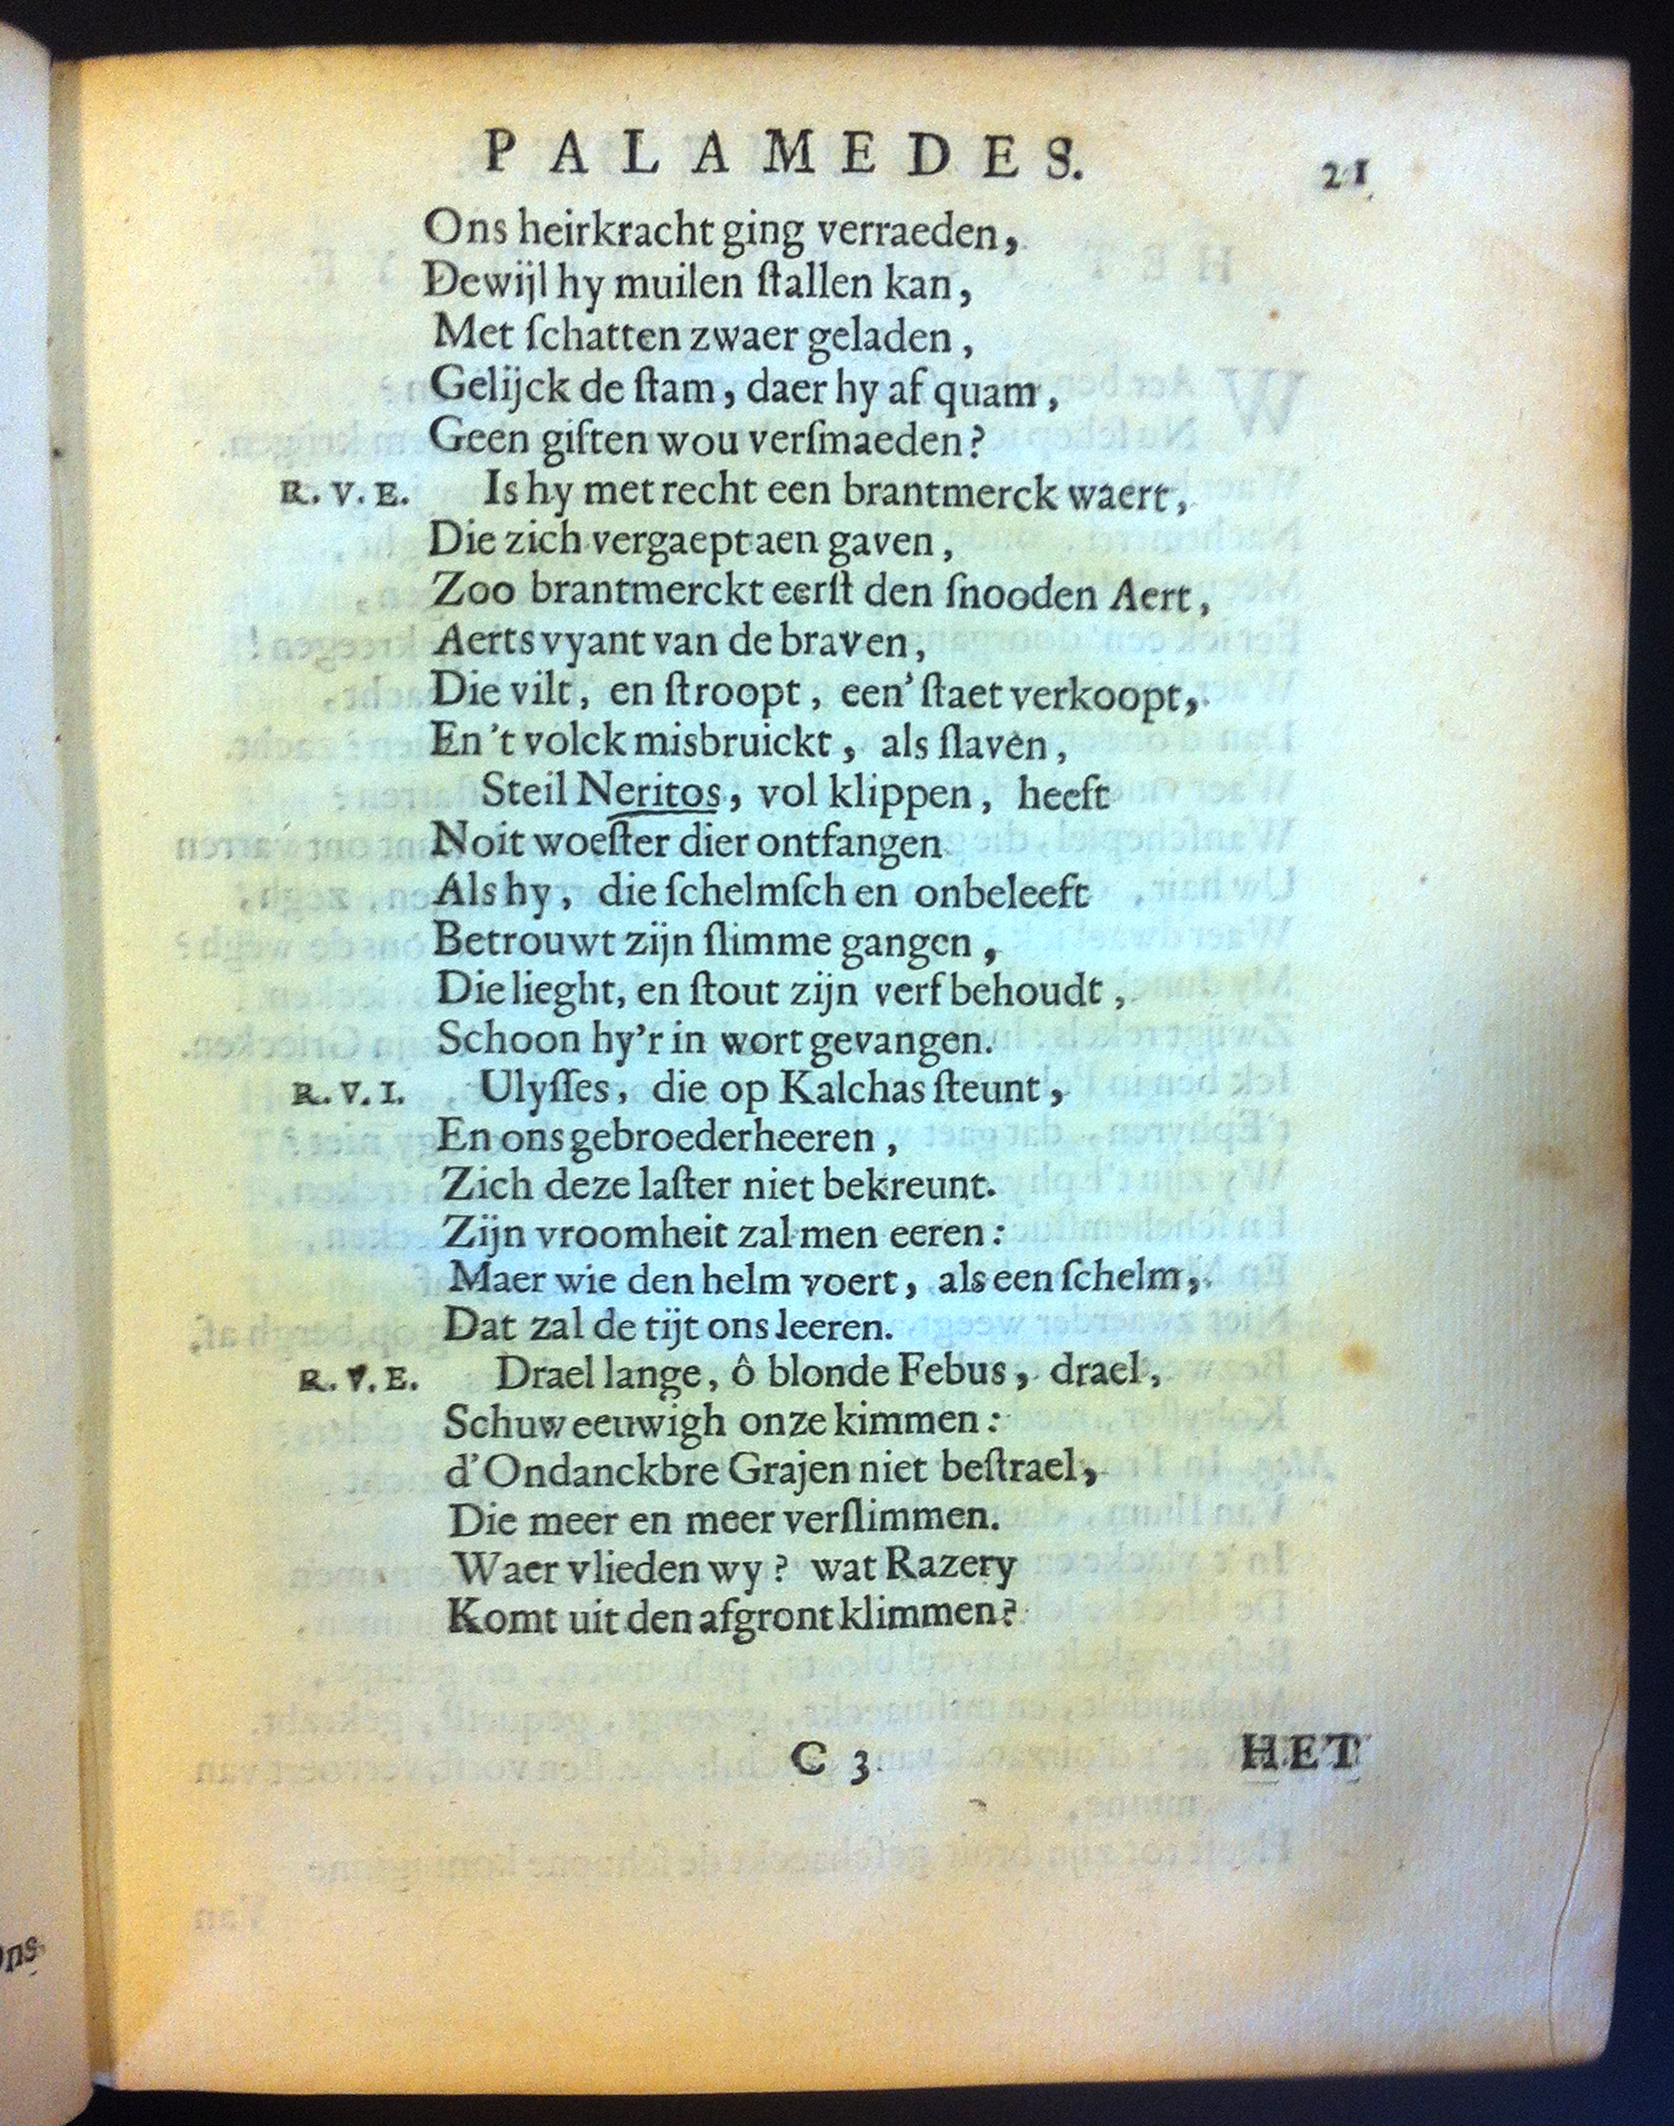 PALAMEDES. 21
Ons heirkracht ging verraeden,
Dewijl hy muilen ſtallen kan,
Met ſchatten zwaer geladen,
Gelijck de ſtam, daer hy af quam,
Geen giften wou verſmaeden?
R. V. E. Is hy met recht een brantmerck waert,
Die zich vergaept aen gaven,
Zoo brantmerckt eerſt den ſnooden Aert,
Aerts vyant van de braven,
Die vilt, en ſtroopt, een' ſtaet verkoopt,
En 't volck misbruickt, als ſlaven,
Steil Neritos, vol klippen, heeft
Noit woeſter dier ontfangen
Als hy, die ſchelmſch en onbeleeft
Betrouwt zijn ſlimme gangen,
Die lieght, en ſtout zijn verf behoudt,
Schoon hy'r in wort gevangen.
R. V. I. Ulyſſes, die op Kalchas ſteunt,
En ons gebroederheeren,
Zich deze laſter niet bekreunt.
Zijn vroomheit zal men eeren:
Maer wie den helm voert, als een ſchelm,
Dat zal de tijt ons leeren.
R. V. E. Drael lange, ô blonde Febus, drael,
Schuw eeuwigh onze kimmen:
d'Ondanckbre Grajen niet beſtrael,
Die meer en meer verſlimmen.
Waer vlieden wy? wat Razery
Komt uit den afgront klimmen?
C 3 HET